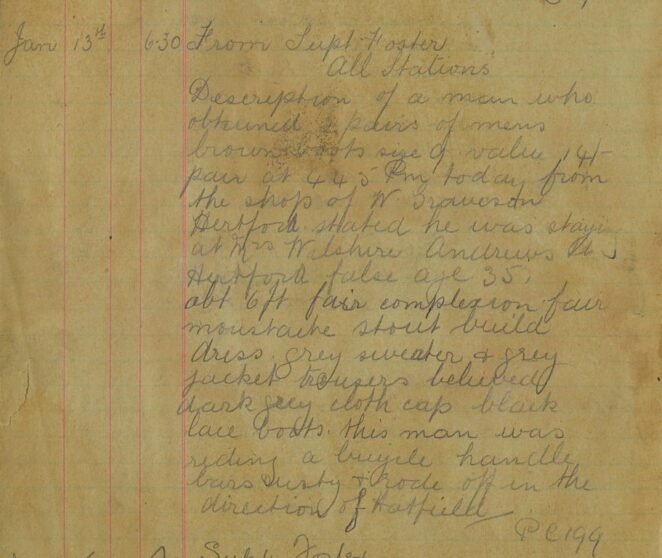 Jan 13th 6-30 From Supt Foster
All Stations
Description of a man who
obtained 2 pairs of mens
brown boots size 9 value 14/-
pair at 4 45 Pm today from
the shop of W. Graveson
Hertford stated he was staying
at Mrs Wilshire Andrews St
Hertford false age 35,
abt 6ft fair complexion fair
moustache stout build
dress grey sweater & grey
jacket trousers believed
dark grey cloth cap black
lace boots. this man was
riding a bicycle handle
bars rusty & rode off in the
direction of Hatfield
PC199
Supt Foster